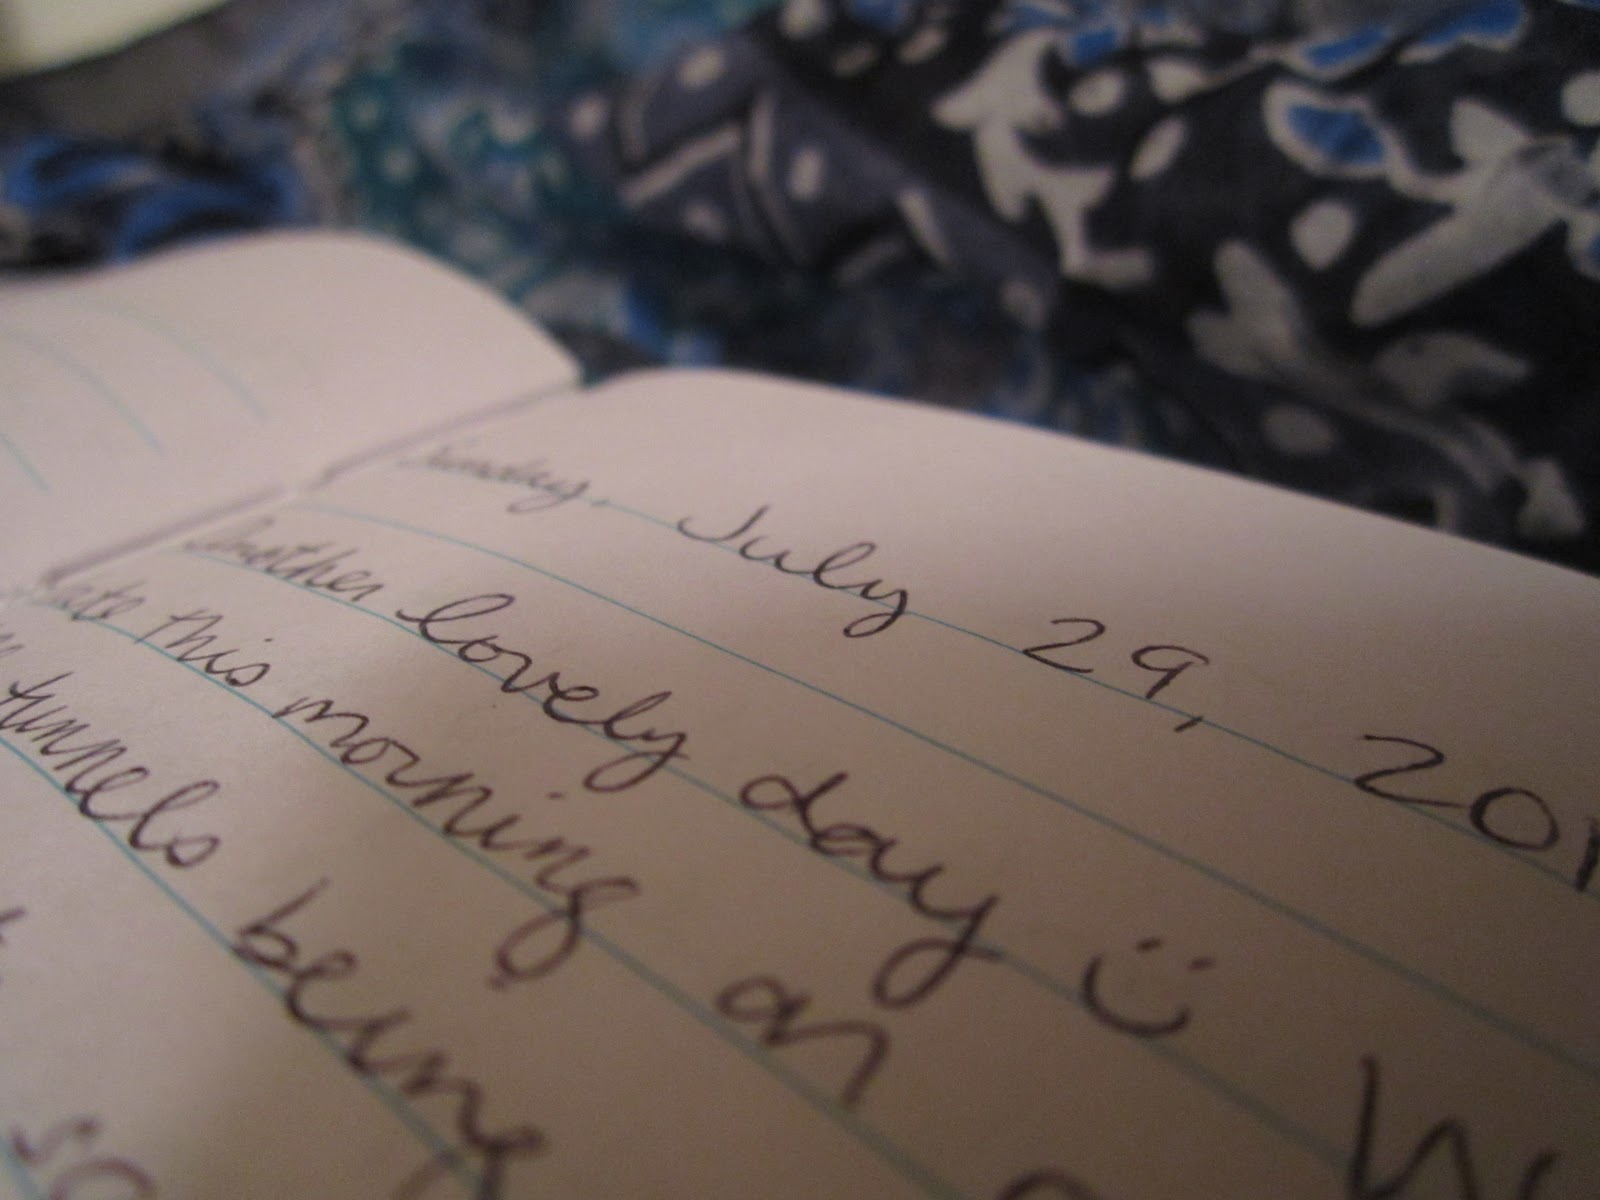 Sunday, July 29, 201
Another lovely day :) W
ate this morning an
tunnels being
so